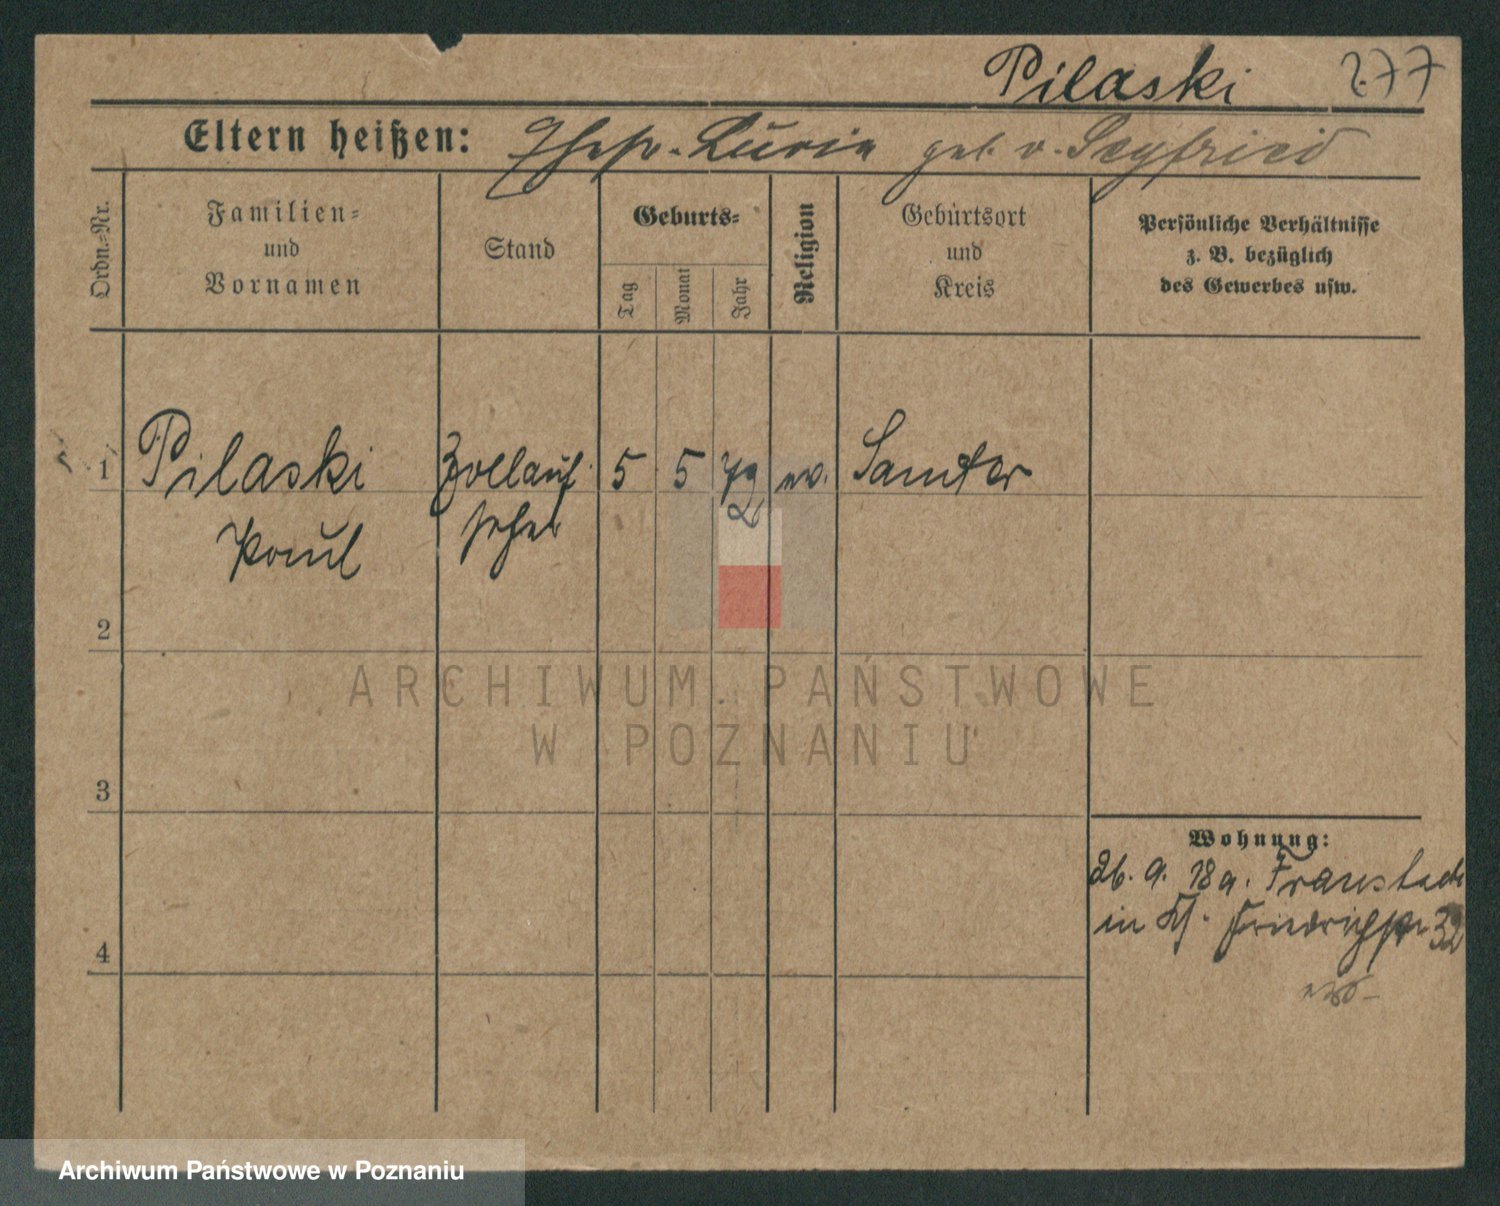 Pilaski 277
Eltern heißen: geb. v. Seyfried
Ordn.=Nr.
Familien=
und
Vornamen
Stand
Geburts=
Tag
Monat
Jahr
Religion
Geburtsort
und
Kreis
Persönliche Verhältnisse
z. B. bezüglich
des Gewerbes usw.
1 Pilaski Zollauf 5 5 72 ev. Samter
Paul seher
2
3
4
Wohnung:
26. 9. 18 a. Fraustadt
in Friedrichstr 32
ARCHIWUM PAŃSTWOWE
W POZNANIU
Archiwum Państwowe w Poznaniu